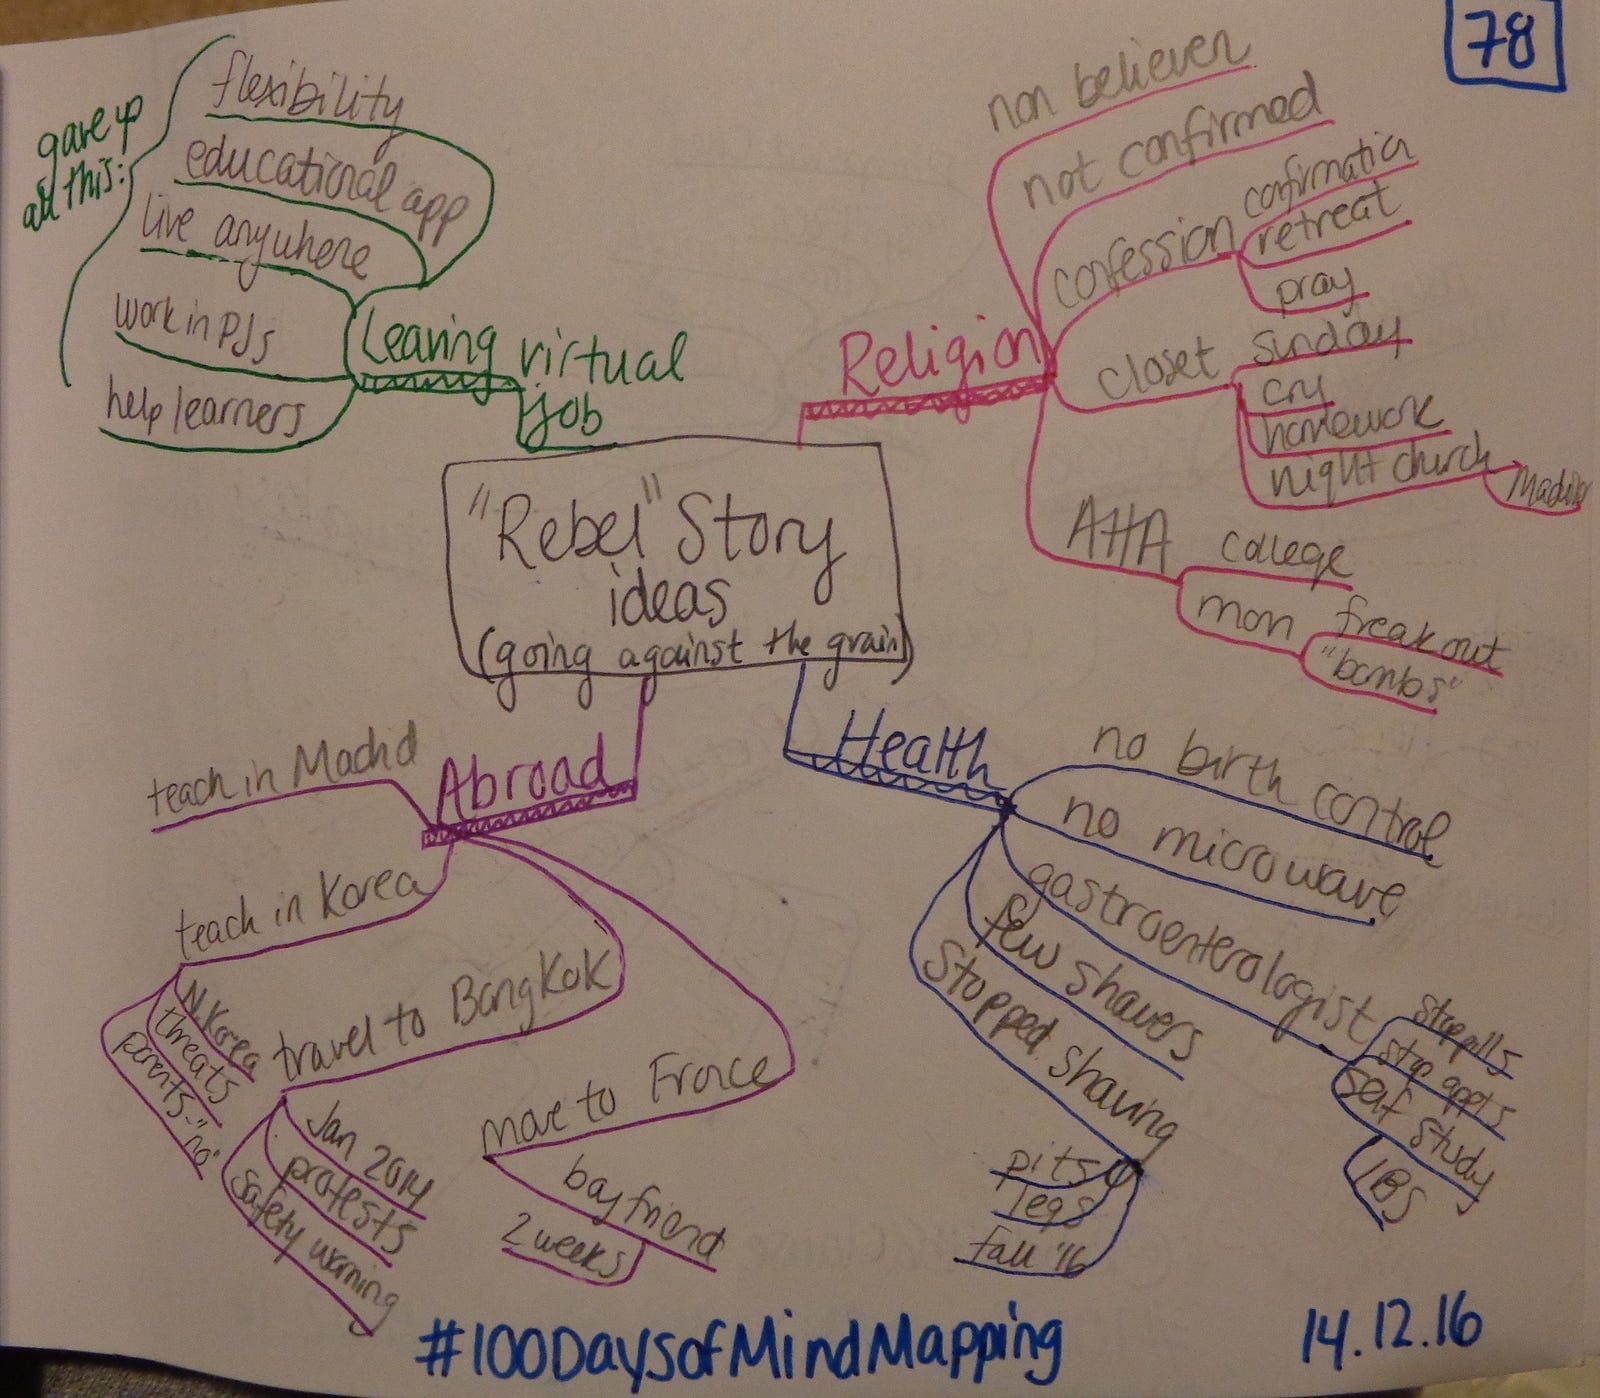 78
"Rebel" Story
ideas
(going against the grain)
Leaving virtual
job
gave up
all this:
flexibility
educational app
live anywhere
work in PJs
help learners
Religion
non believer
not confirmed
confession
confirmation
retreat
pray
closet
sunday
cry
homework
night church
AHA
college
mom
freak out
"bombs"
Abroad
teach in Madrid
teach in Korea
N. Korea
threats
parents - "no"
travel to Bangkok
Jan 2014
protests
safety warning
move to France
boyfriend
2 weeks
Health
no birth control
no microwave
gastroenterologist
stop pills
stop appts
self study
IBS
few showers
stopped shaving
pits
legs
fall '16
#100DaysofMindMapping
14.12.16